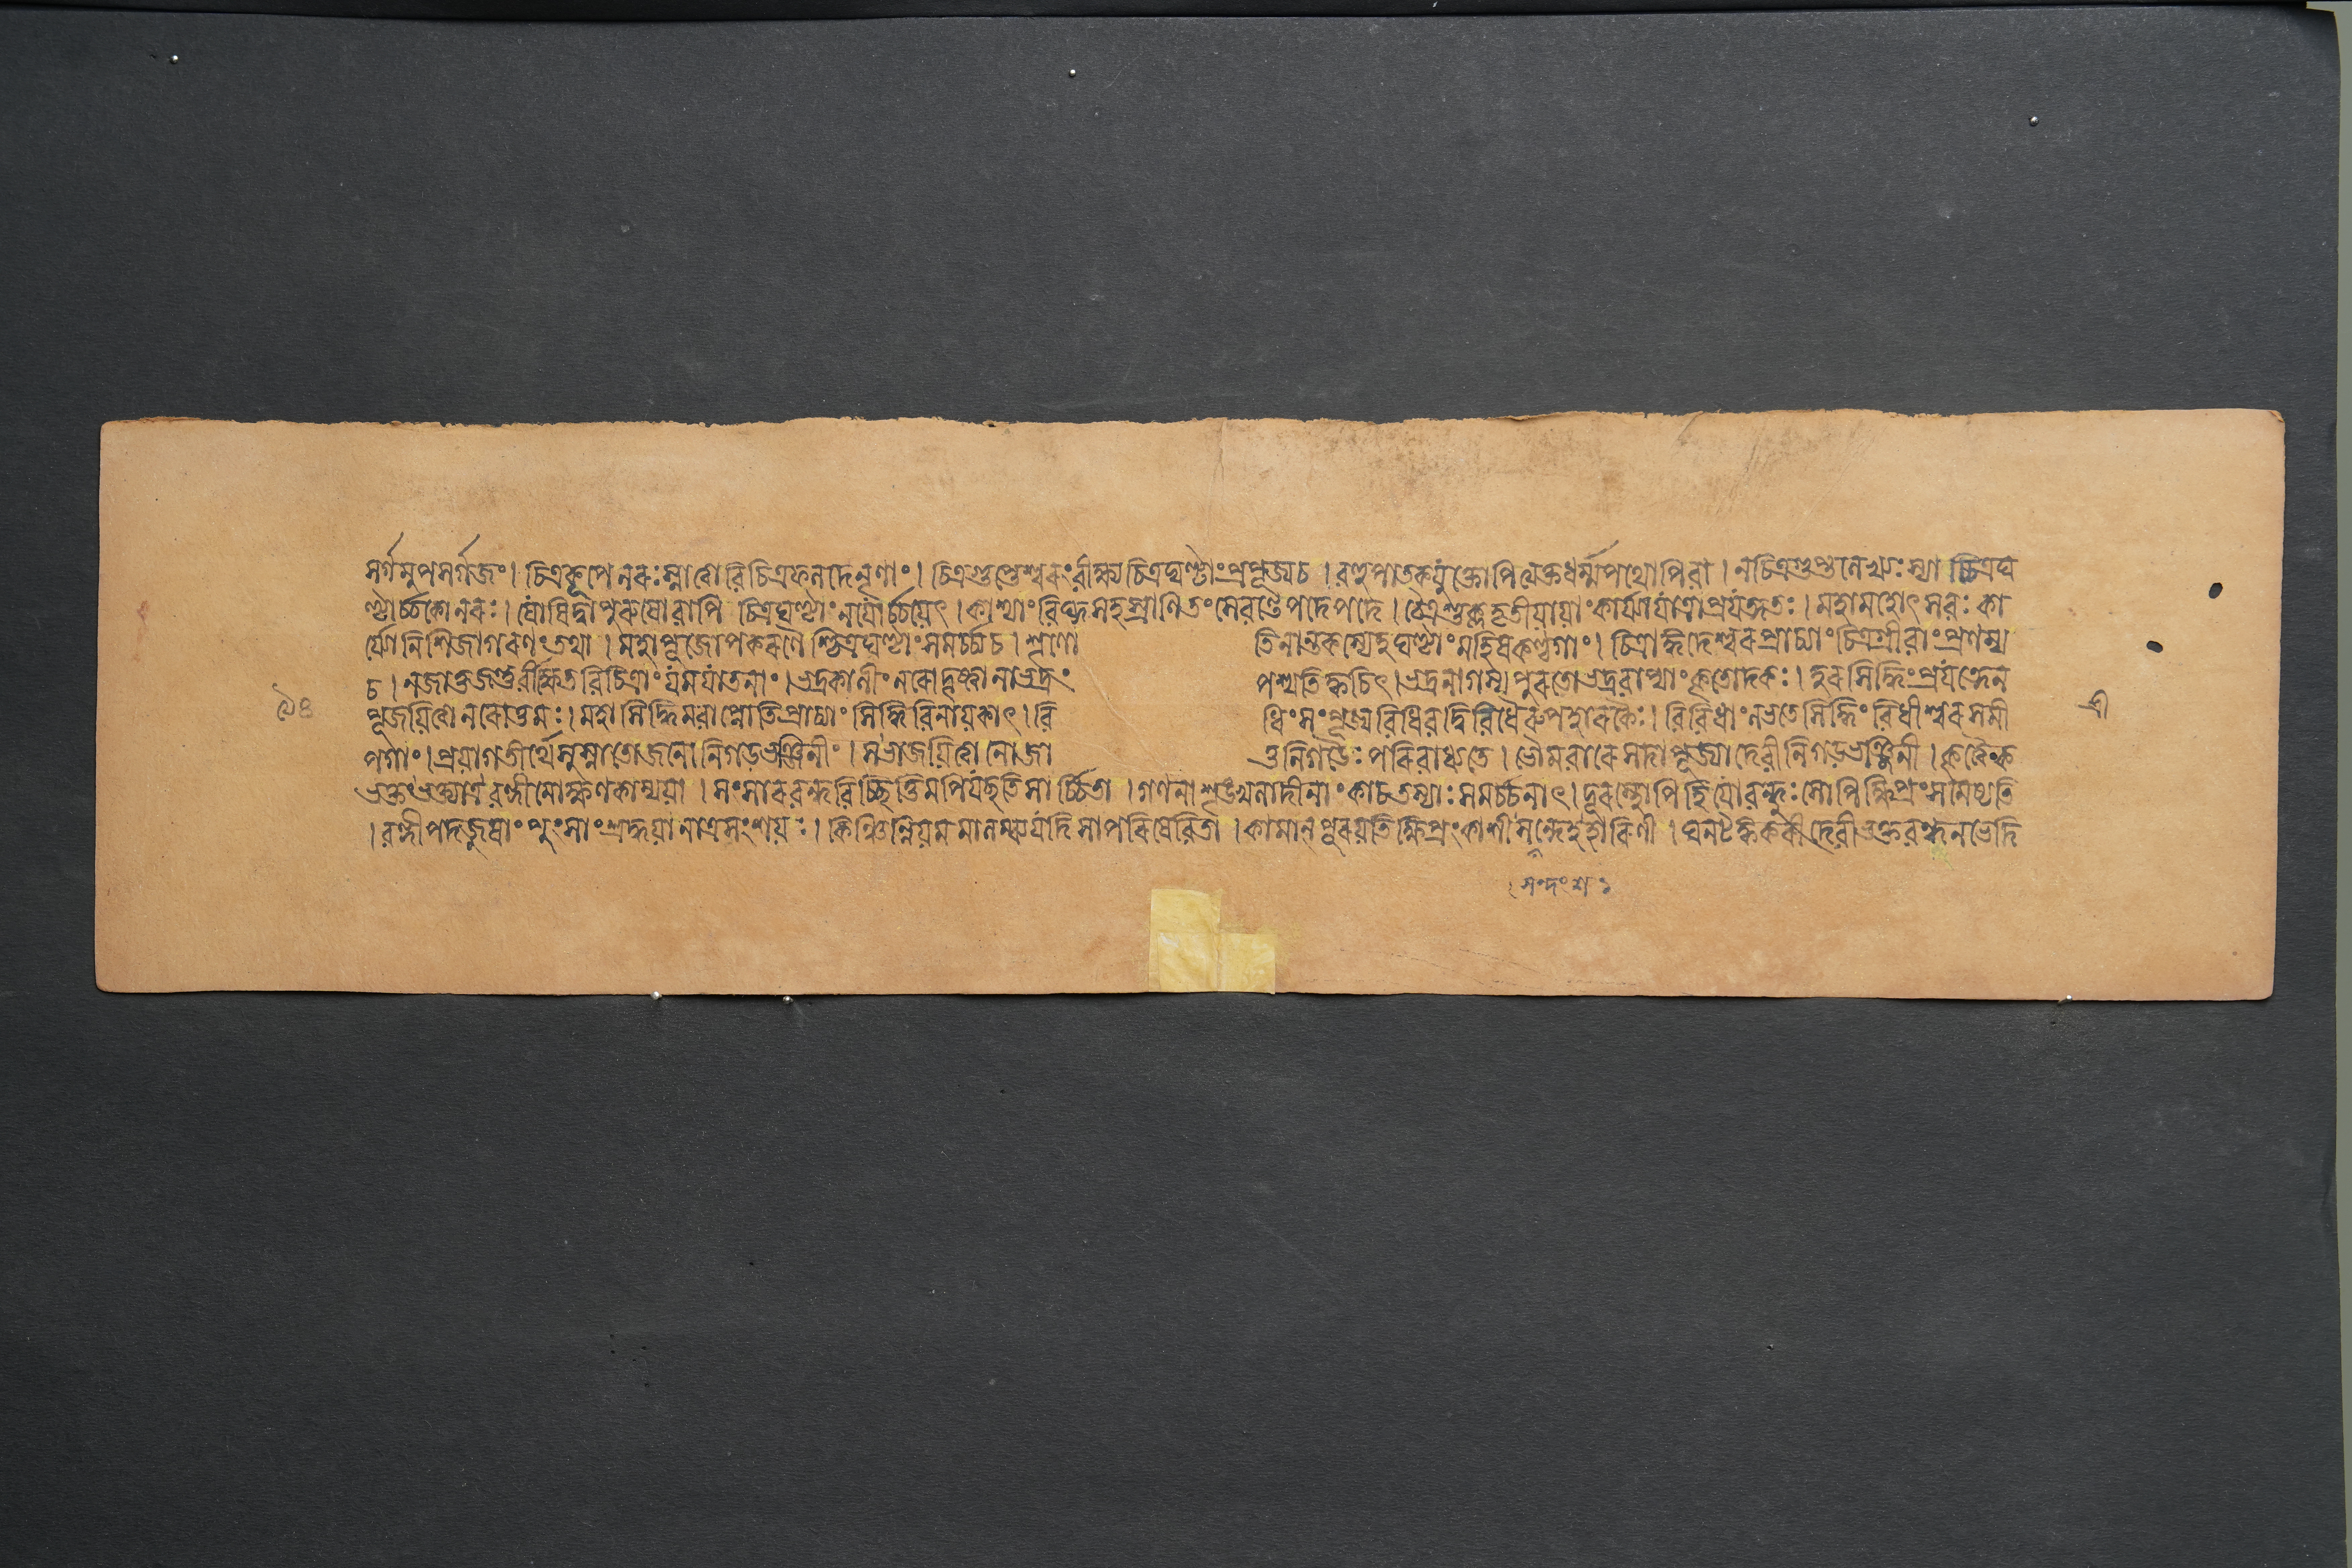 সর্গমুপসর্গজং। চিত্রকূপে নরঃ স্নাত্বা বিচিত্রফলদে নৃণাং। চিত্রগুপ্তেশ্বরং বীক্ষ্য চিত্রঘণ্টাং প্রপূজ্য চ। বহুপাতকযুক্তোপি ত্যক্তধর্ম্মপথোপি বা। ন চিত্রগুপ্তলেখ্যঃ স্যা চ্চিত্রঘ
ণ্টার্চ্চকো নরঃ। যোষিদ্বা পুরুষো বাপি চিত্রঘণ্টাং ন যোর্চ্চয়েৎ। কাশ্যাং বিঘ্নসহস্রাণি তং সেবন্তে পদে পদে। চৈত্রশুক্লতৃতীয়ায়াং কার্য্যা যাত্রা প্রযত্নতঃ। মহামহোৎসবঃ কা
র্য্যো নিশি জাগরণং তথা। মহাপূজোপকরণৈ শ্চিত্রঘণ্টাং সমর্চ্চ্য চ। শৃণো তি নান্তকস্যেহ ঘণ্টাং মহিষকণ্ঠগাং। চিত্রাঙ্গদেশ্বরপ্রাচ্যাং চিত্রগ্রীবাং প্রণম্য
চ। ন জাতু জন্তুর্বীক্ষেত বিচিত্রাং যমযাতনাং। ভদ্রকালীং নরো দৃষ্ট্বা নাভদ্রং পশ্যতি ক্কচিৎ। ভদ্রনাগস্য পুরতো ভদ্রবাপ্যাং কৃতোদকঃ। হরসিদ্ধিং প্রযত্নেন
পূজয়িত্বা নরোত্তমঃ। মহাসিদ্ধিমবাপ্নোতি প্রাচ্যাং সিদ্ধিবিনায়কাৎ। বি ধিং সংপূজ্য বিধিবদ্বিবিধৈরুপহারকৈঃ। বিবিধাং লভতে সিদ্ধিং বিধীশ্বরসমী
পগাং। প্রয়াগতীর্থে সুস্নাতো জনো নিগড়ভঞ্জিনীং। সভাজয়িত্বা নো জা তু নিগড়ৈঃ পরিবাধ্যতে। ভৌমবারে সদা পূজ্যা দেবী নিগড়ভঞ্জিনী। কৃত্বৈক
ভক্তং ভক্ত্যাত্র বন্দীমোক্ষণকাম্যয়া। সংসারবন্ধবিচ্ছিত্তিমপি যচ্ছতি সার্চ্চিতা। গণনা শৃঙ্খলাদীনাং কা চ তস্যাঃ সমর্চ্চনাৎ। দূরস্থোপি হি যো বন্ধুঃ সোপি ক্ষিপ্রং সমেষ্যতি
। বন্দীপদজুষাং পুংসাং শ্রদ্ধয়া নাত্র সংশয়ঃ। কিঞ্চিন্নিয়মমালম্ব্য যদি সা পরিষেবিতা। কামান্ পূরয়তি ক্ষিপ্রং কাশী সন্দেহহারিণী। ঘনটঙ্ককরী দেবী ভক্তবন্ধনভেদি
সন্দংশঃ